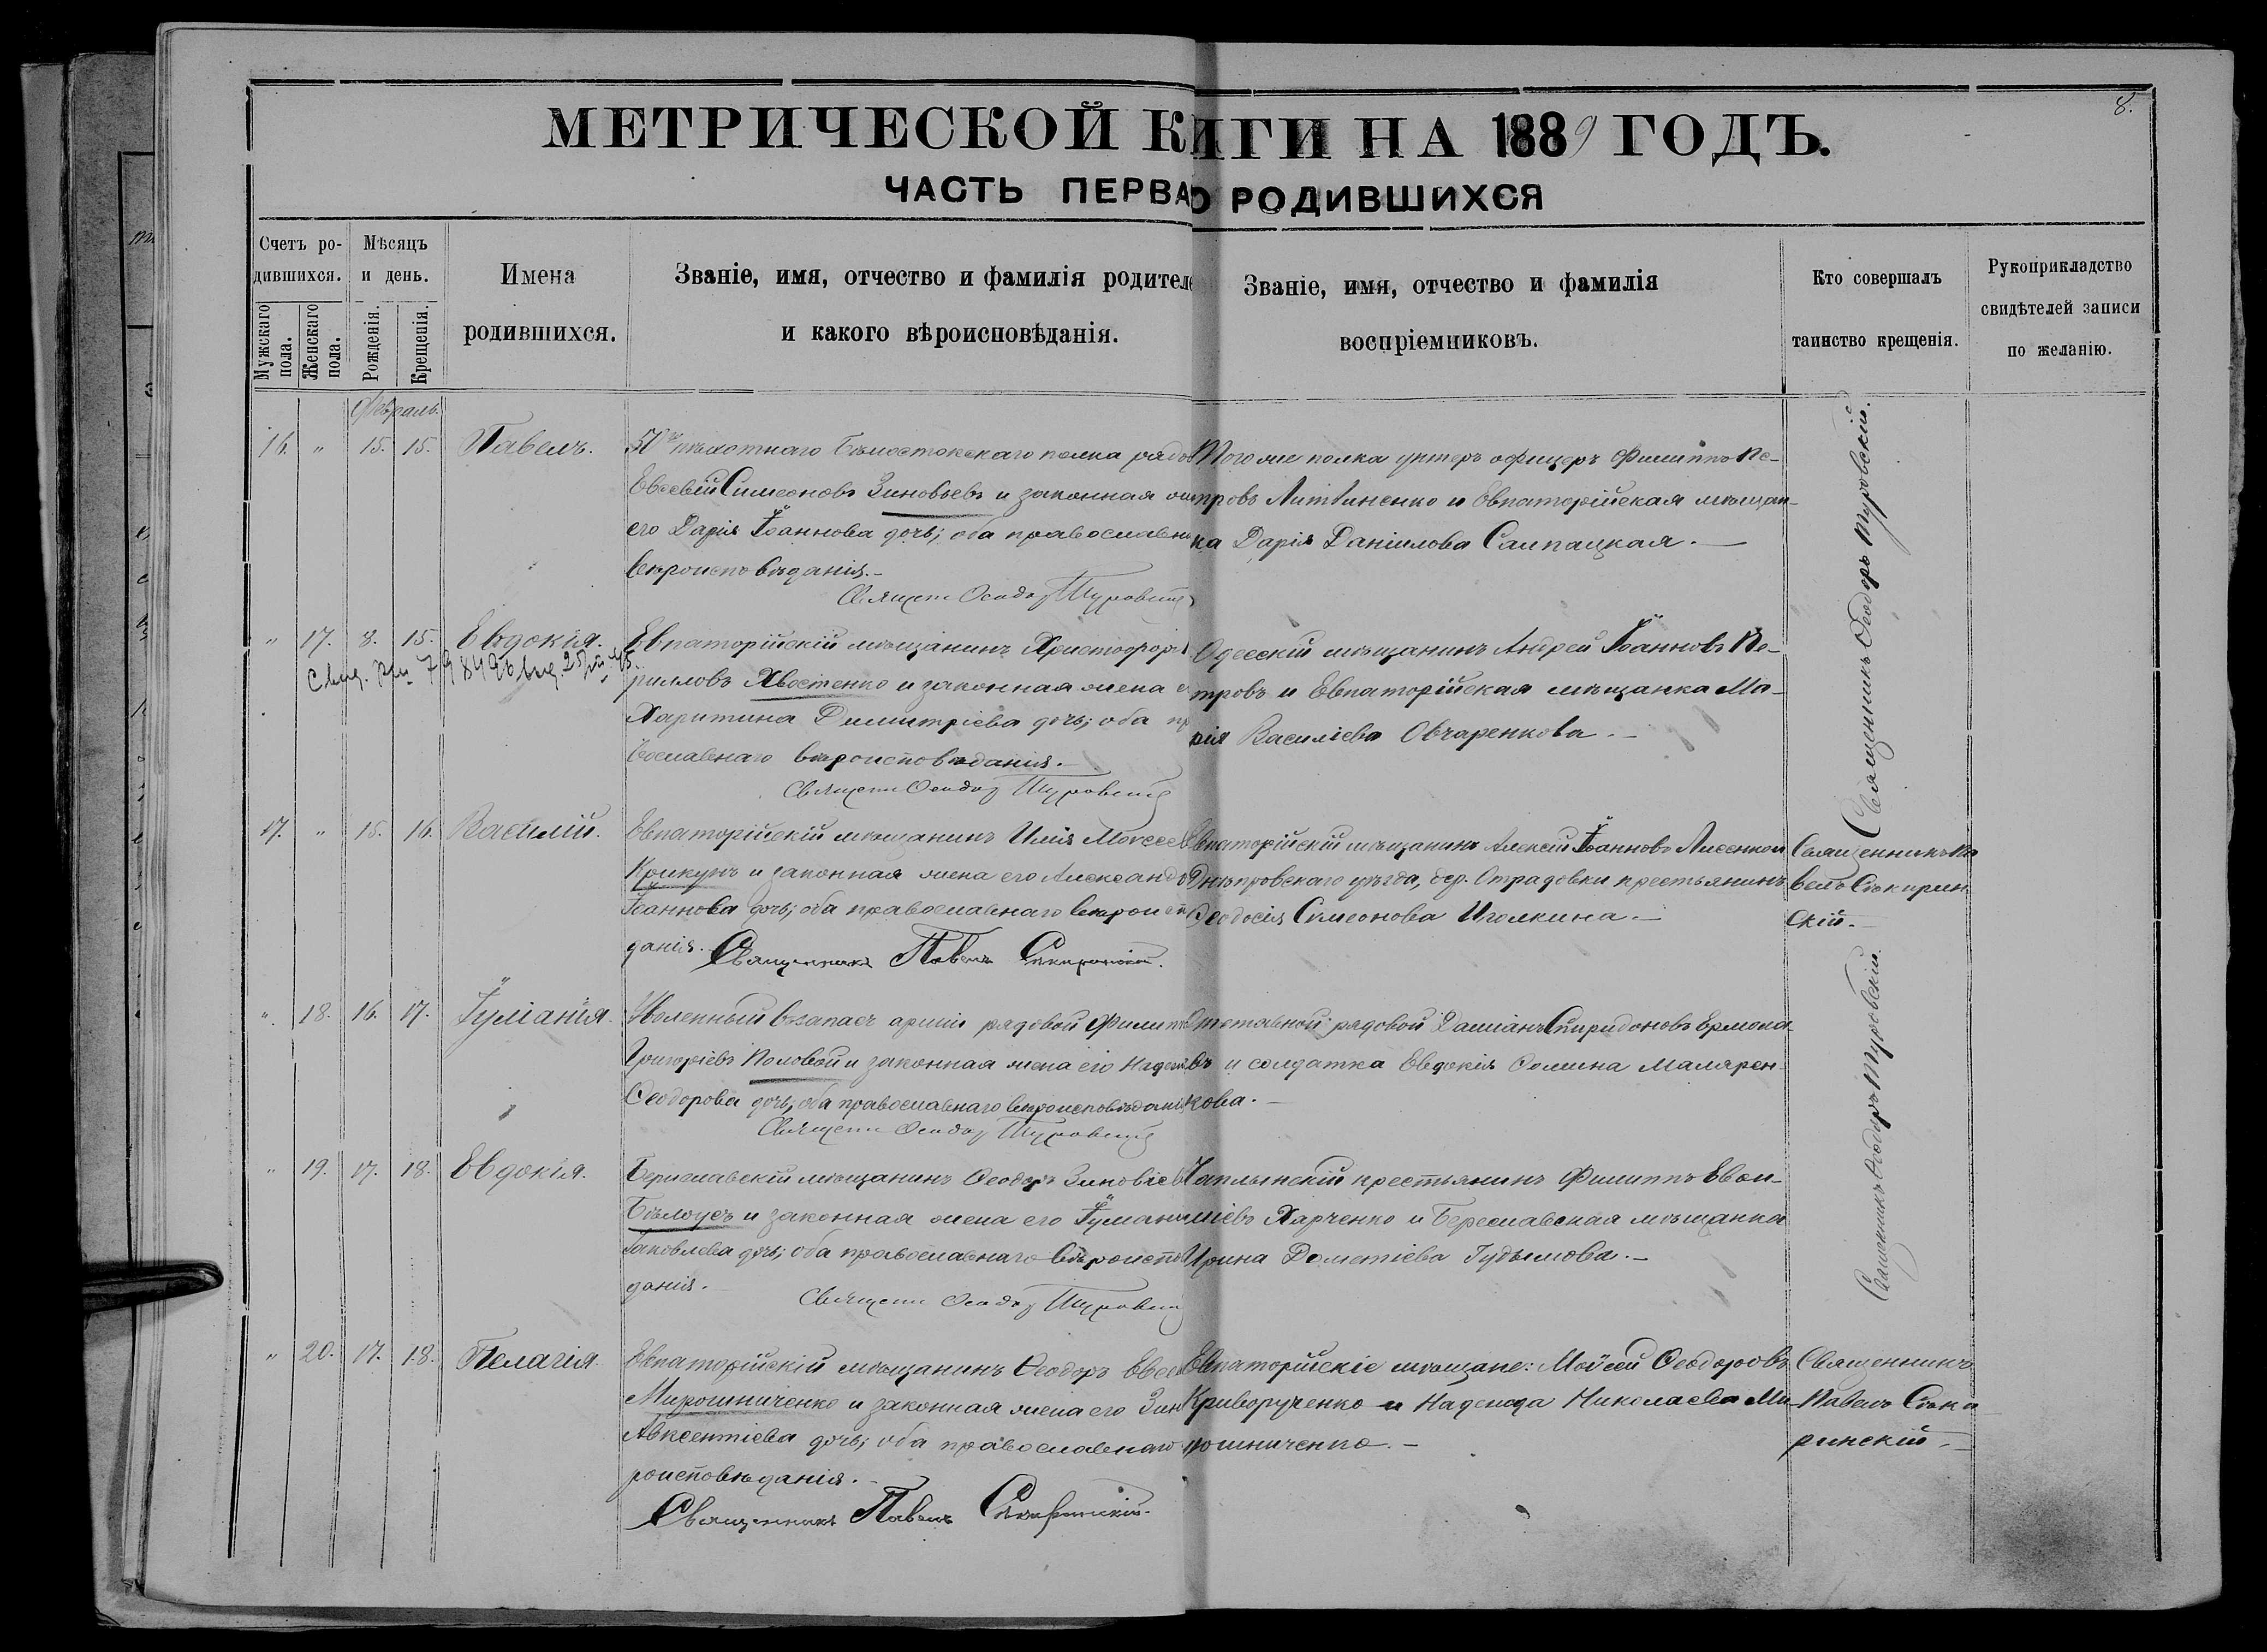 8.
МЕТРИЧЕСКОЙ К
ИГИ НА 1889 ГОДЪ.
ЧАСТЬ ПЕРВА
О РОДИВШИХСЯ
Счетъ ро-
дившихся.
Мужскаго
пола.
Женскаго
пола.
Мѣсяцъ
и день.
Рожденія.
Крещенія.
Имена
родившихся.
Званіе, имя, отчество и фамилія родителе
и какого вѣроисповѣданія.
Званіе, имя, отчество и фамилія
воспріемниковъ.
Кто совершалъ
таинство крещенія.
Рукоприкладство
свидѣтелей записи
по желанію.
Февраль.
16. " 15. 15. Павелъ.
пѣхотнаго Бѣлостокскаго полка рядов
Евсевій Симеоновъ Зиновьевъ и законная
его Дарія Іоаннова дочь; оба православн
вѣроисповѣданія.-
Священ Ѳеодор Туровскій
Того же полка унтеръ офицеръ Филиппъ Пе-
тровъ Литвиненко и Евпаторійская мѣщан-
ка Дарія Даніилова Салпацкая.-
Священникъ Ѳеодоръ Туровскій.
" 17. 8. 15. Евдокія.
Евпаторійскій мѣщанинъ Христофоръ
рилловъ Хвостенко и законная жена е
Харитина Димитріева дочь; оба пр
вославнаго вѣроисповѣданія.-
Священ Ѳеодор Туровскій
Одесскій мѣщанинъ Андрей Іоанновъ Пе-
тровъ и Евпаторійская мѣщанка Ма-
рія Василіева Овчаренкова.-
17. " 15. 16. Василій.
Евпаторійскій мѣщанинъ Илія Моѵсеев
Крикунъ и законная жена его Александр
Іоаннова дочь; оба православнаго вѣроисп
данія.-
Священникъ Павелъ Сѣкиринскій.
Евпаторійскій мѣщанинъ Алексей Іоанновъ Лисенко и
Днѣпровскаго уѣзда, дер. Отрадовки крестьянинъ
Ѳеодосія Симеонова Иголкина.-
Священникъ Па
велъ Сѣкирин
скій.-
". 18. 16. 17. Іуліанія.
Уволенный въ запасъ арміи рядовой Филип
Григоріевъ Половой и законная жена его Надеж
Ѳеодорова дочь, оба православнаго вѣроисповѣданія
Священ Ѳеодор Туровскій
Отставной рядовой Даміанъ Спиридоновъ Ермола
въ и солдатка Евдокія Ѳомина Маляренкова.-
Священникъ Ѳеодоръ Туровскій.
" 19. 17. 18. Евдокія.
Бериславскій мѣщанинъ Ѳеодоръ Зиновіев
Бѣлоусъ и законная жена его Іуліані
Іаковлева дочь; оба православнаго вѣроиспов
данія.-
Священ Ѳеодор Туровскій
Чаплынскій крестьянинъ Филиппъ Евои-
міевъ Харченко и Береславская мѣщанка
Ирина Дометіева Гудымова.-
" 20. 17. 18. Пелагія.
Евпаторійскій мѣщанинъ Ѳеодоръ Евсе
Мирошниченко и законная жена его Зин
Авксентіева дочь; оба православнаго
роисповѣданія.-
Священникъ Павелъ Сѣкиринскій.
Евпаторійскіе мѣщане: Моѵсей Ѳеодоровъ
Криворученко и Надежда Николаева Ми-
рошниченко.-
Священникъ
Павелъ Сѣки
ринскій.-